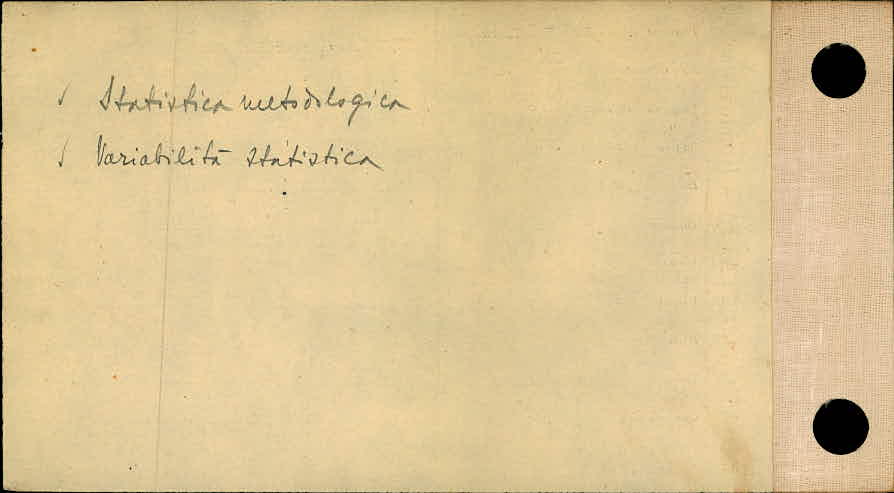 √ Statistica metodologica
√ Variabilità statistica